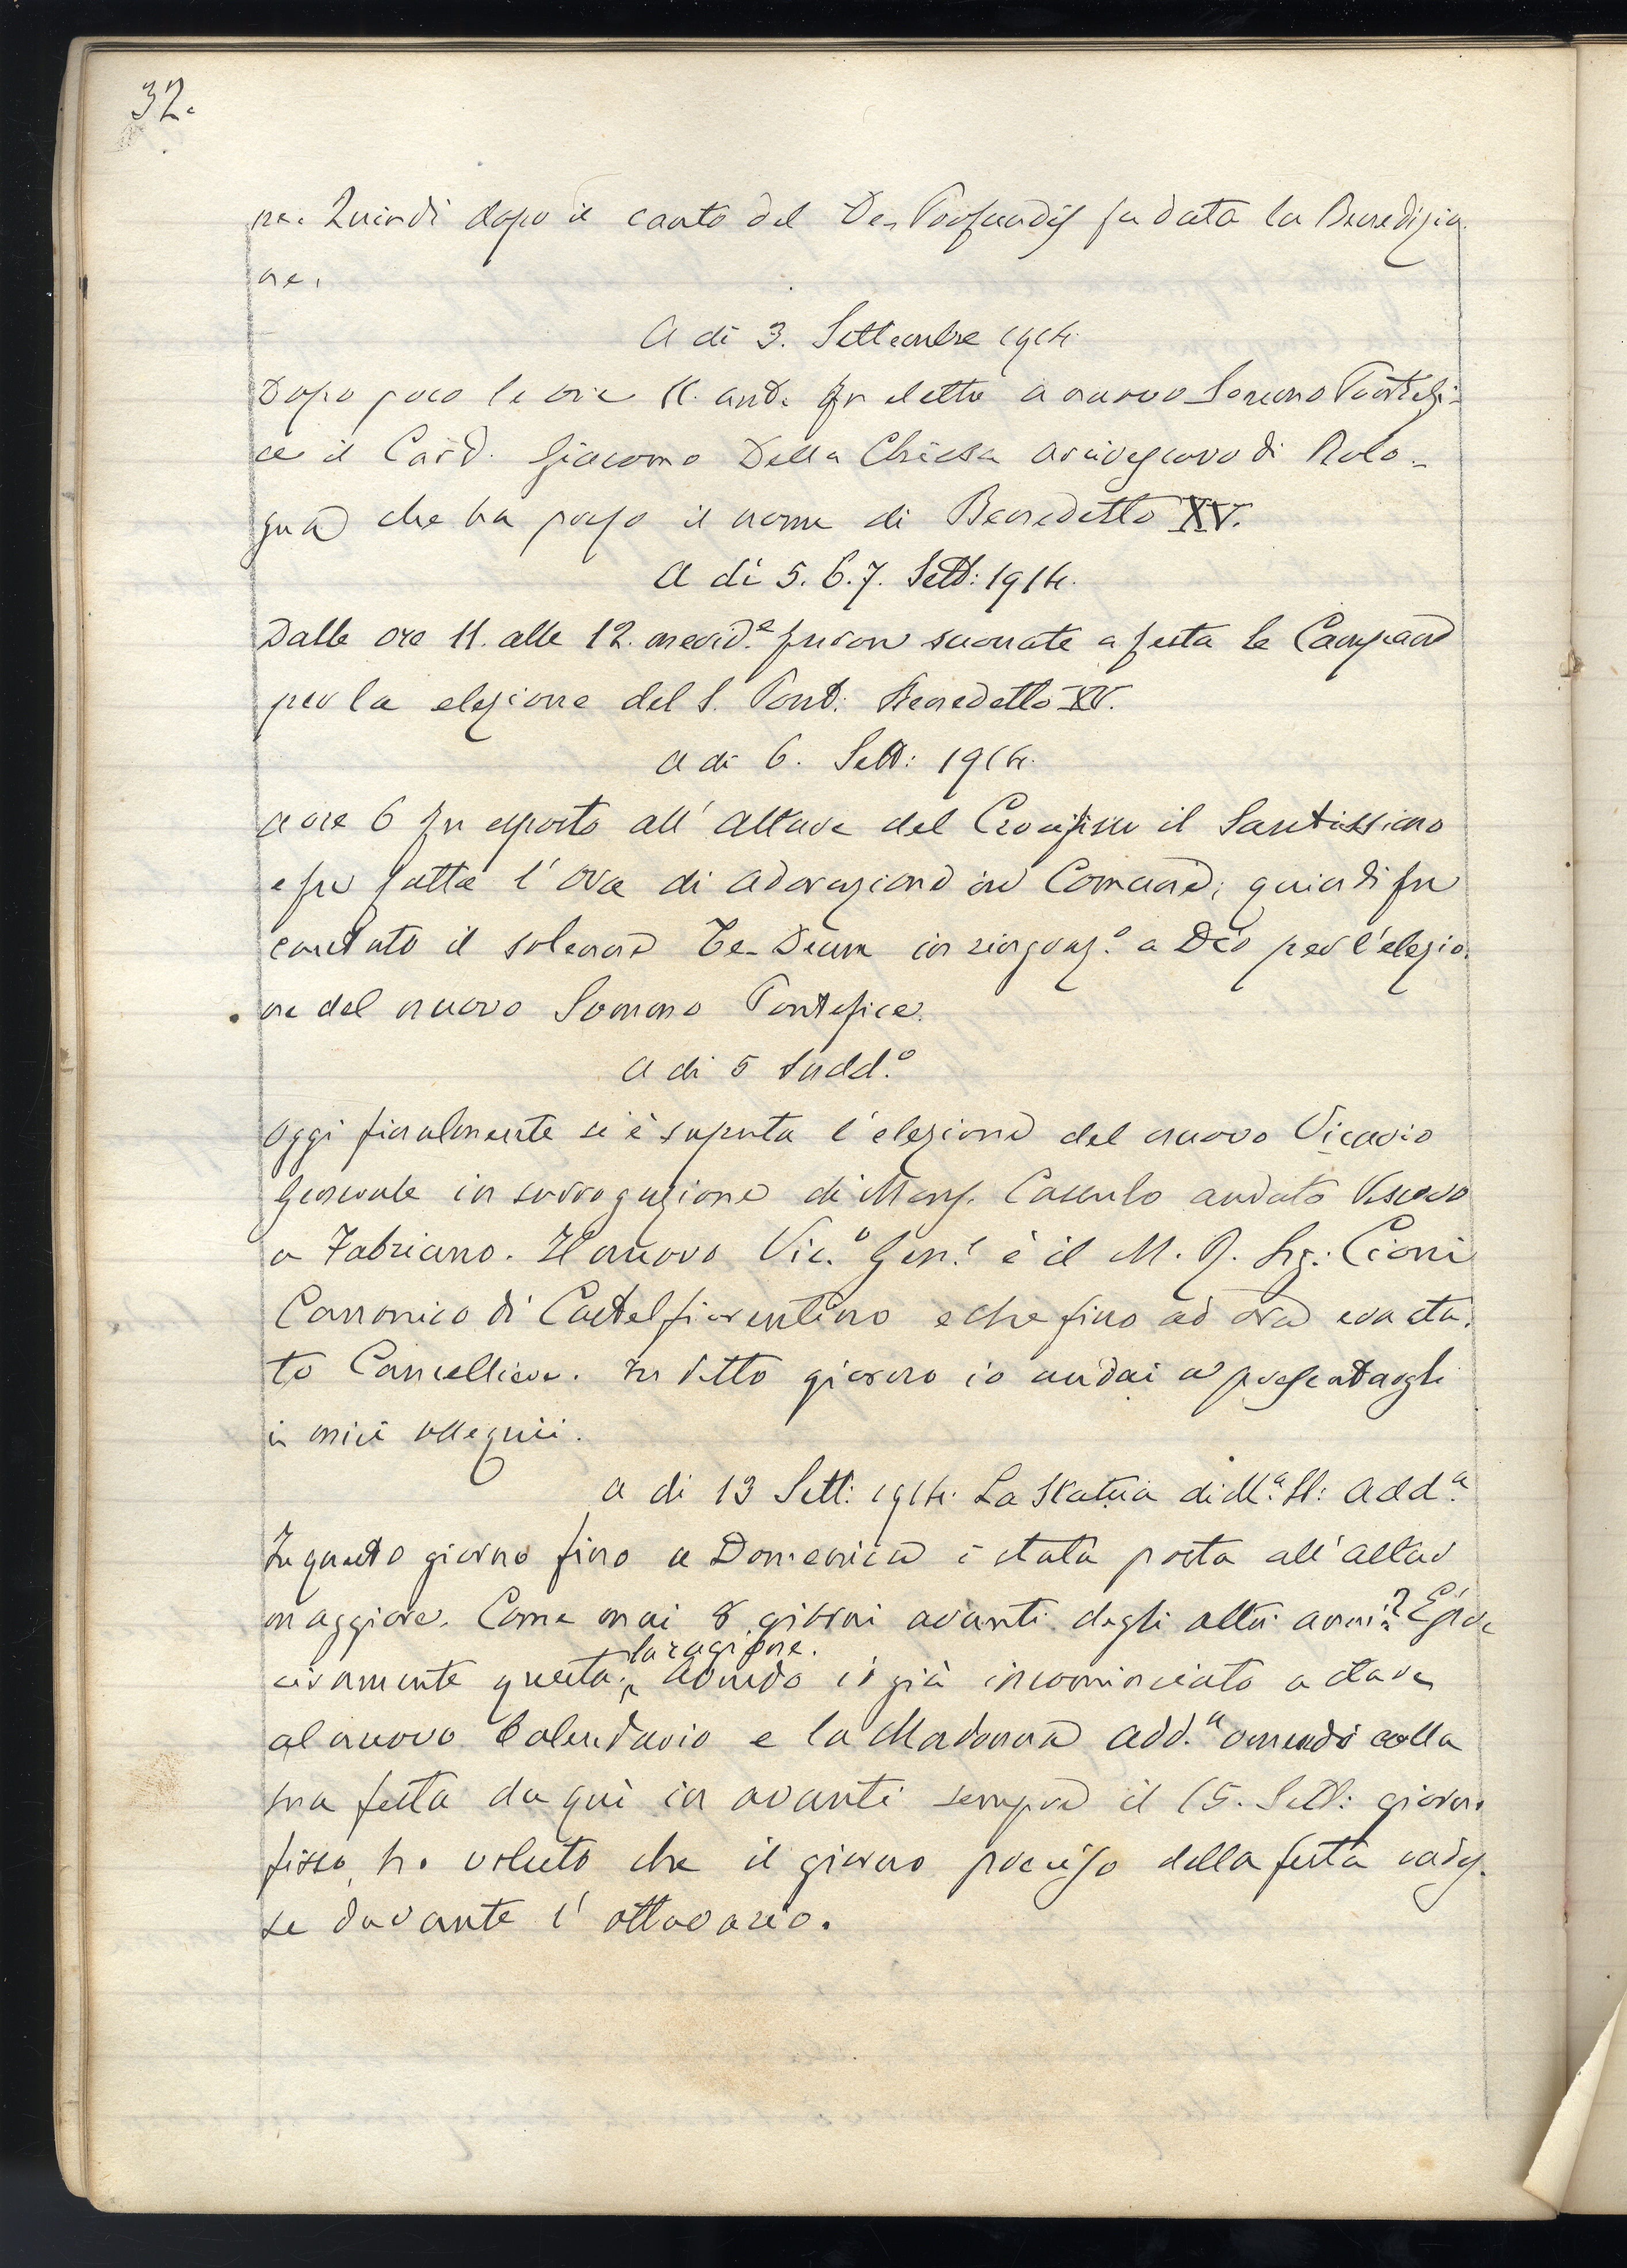 32.
ne. Quindi dopo il canto del De-Profundis fu data la Benedizio-
ne.
A di 3. Settembre 1914.
Dopo poco le ore 11. ant. fu eletto a nuovo Sommo Pontefi-
ce il Card. Giacomo Della Chiesa Arcivescovo di Bolo-
gna che ha preso il nome di Benedetto XV.
A di 5. 6. 7. Sett: 1914.
Dalle ore 11. alle 12. merid.e furon suonate a festa le Campane
per la elezione del S. Pont: Benedetto XV.
A di 6. Sett: 1914.
A ore 6 fu esposto all' Altare del Crocifisso il Santissimo
e fu fatta l' ora di adorazione in Comune; quindi fu
cantato il solenne Te-Deum in ringraz.o a Dio per l'elezio-
ne del nuovo Sommo Pontefice.
A di 5 Sudd.o
Oggi finalmente si è saputa l' elezione del nuovo Vicario
Generale in surrogazione di Mons. Cassulo andato Vescovo
a Fabriano. Il nuovo Vic.o Gen.l è il M. R. Sig: Cioni
Canonico di Castelfiorentino e che fino ad ora era sta-
to Cancelliere. In detto giorno io andai a presentargli
i miei ossequii.
A di 13 Sett: 1914. La Statua di M.a SS: Add.a
In questo giorno fino a Domenica è stata posta all' altar
maggiore. Come mai 8 giorni avanti degli altri anni? È pre
cisamente questa la ragione. Avendo io già incominciato a stare
al nuovo Calendario e la Madonna Add.a avendo colla
sua festa da qui in avanti sempre il 15. Sett: giorno
fisso, ho voluto che il giorno preciso della festa cades-
se durante l' ottavario.